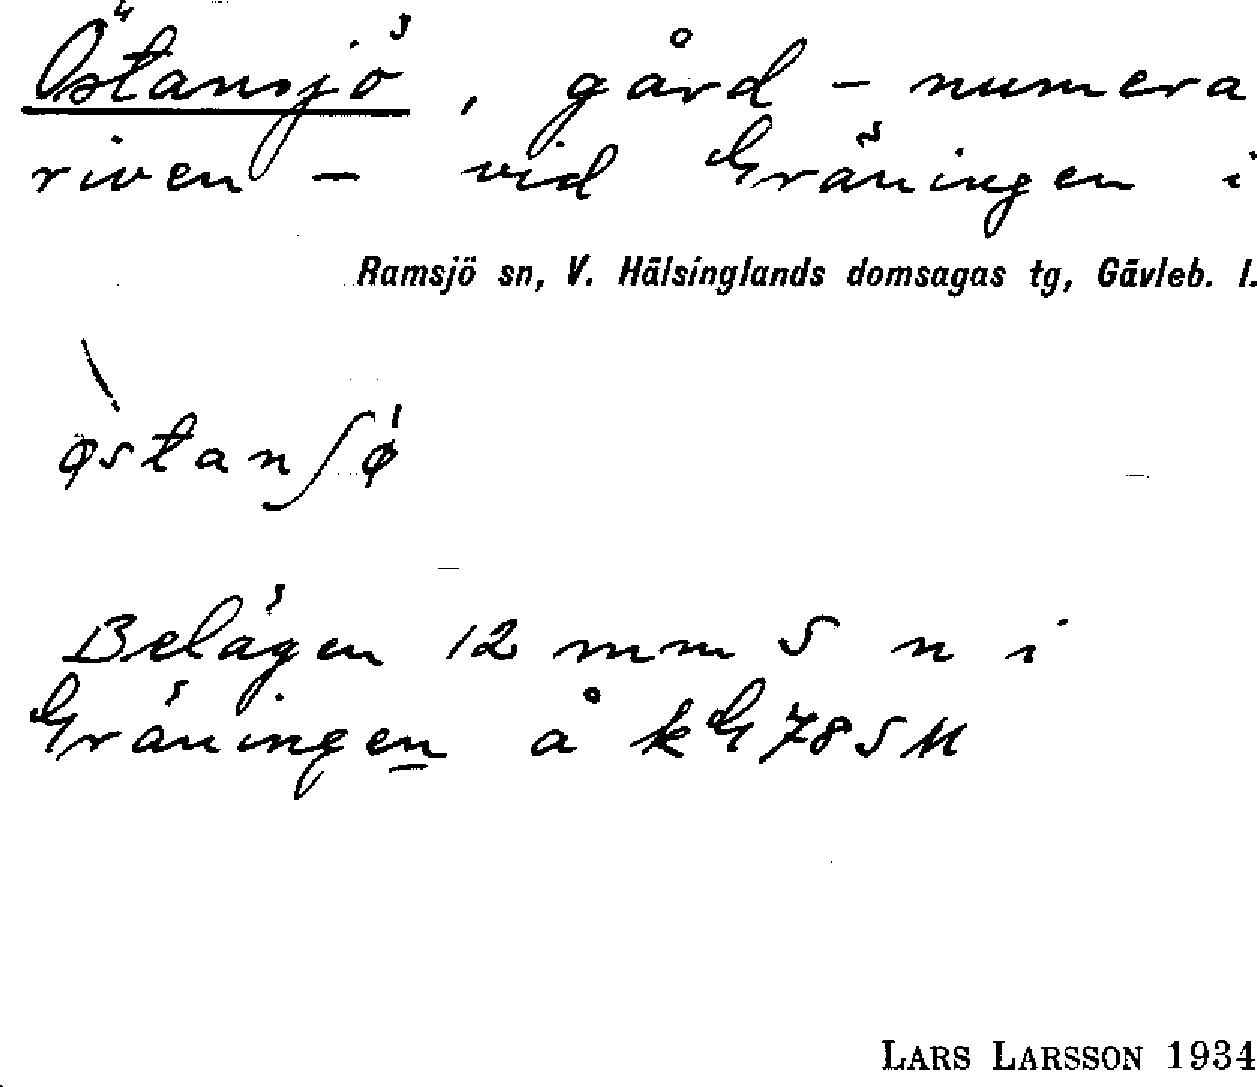 Östansjö, gård - numera
riven - vid Gräningen i
Ramsjö sn, V. Hälsinglands domsagas tg, Gävleb. l.
østanʃø
Belägen 12 mm S n i
Gräningen å kG 78 SM
LARS LARSSON 1934